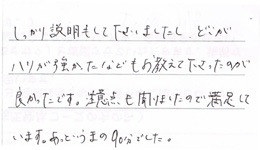 しっかり説明もして下さいましたし、どこが
ハリが強かったなども教えて下さったのが
良かったです。注意点も聞けましたので満足して
います。あっというまの90分でした。